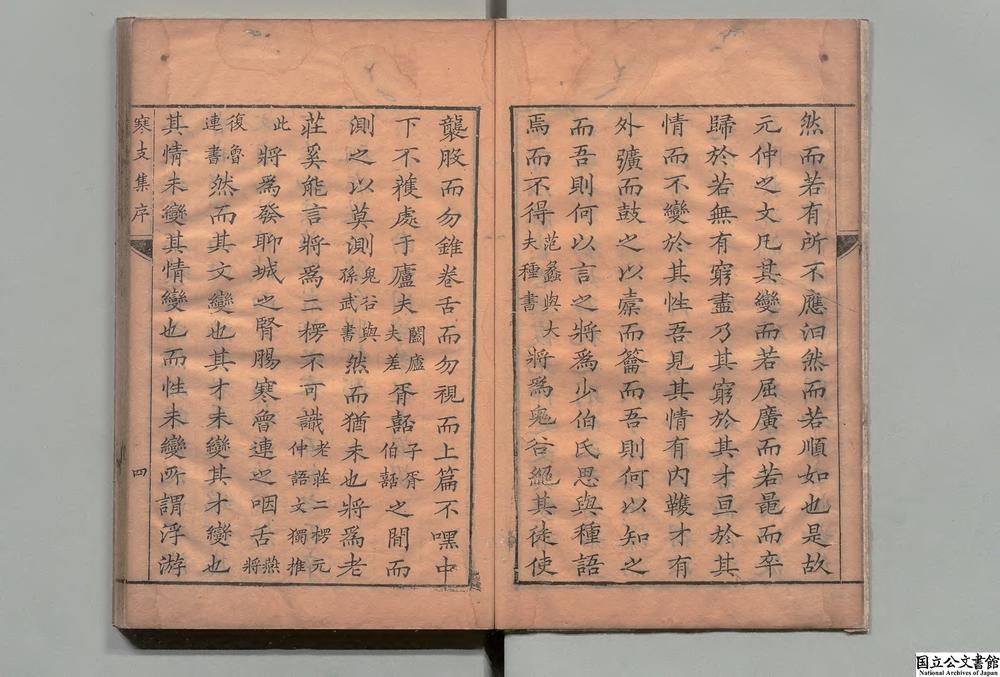 然而若有所不應汩然而若順如也是故
元仲之文凡其變而若屈廣而若黽而卒
歸於若無有窮盡乃其窮於其才亘於其
情而不變於其性吾見其情有内韄才有
外彍而鼓之以橐而籥而吾則何以知之
而吾則何以言之將爲少伯氏思與種語
焉而不得范蠡與大夫種書將爲鬼谷繩其徒使
襲股而勿錐卷舌而勿視而上篇不嘿中
下不蓷處于廬夫闔廬夫差胥嚭子胥伯嚭之間而
測之以莫測鬼谷與孫武書然而猶未也將爲老
莊奚能言將爲二楞不可識老莊二楞元仲語文獨推
此將爲發聊城之腎腸寒魯連之咽舌燕將
復魯連書然而其文變也其才未變其才變也
其情未變其情變也而性未變所謂浮游
寒支集序 四
国立公文書館
National Archives of Japan